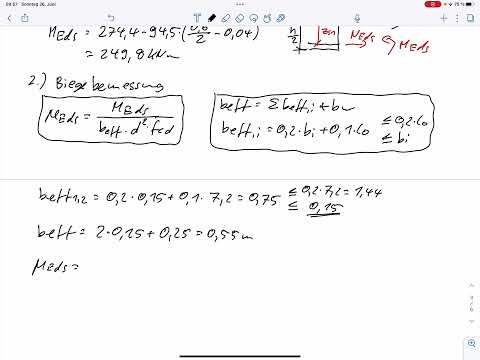 09:57 Sonntag 26. Juni
75 %
MEds = 274,4 - 94,5 · (0,6/2 - 0,04)
= 249,8 kNm
h/2
zsn
NEds
MEds
2.) Biegebemessung
μEds = MEds / (beff · d² · fcd)
beff = Σ beff,i + bw
beff,i = 0,2 · bi + 0,1 · l0 ≤ 0,2 · l0
≤ bi
beff1,2 = 0,2 · 0,15 + 0,1 · 7,2 = 0,75 ≤ 0,2 · 7,2 = 1,44
≤ 0,15
beff = 2 · 0,15 + 0,25 = 0,55 m
μEds =